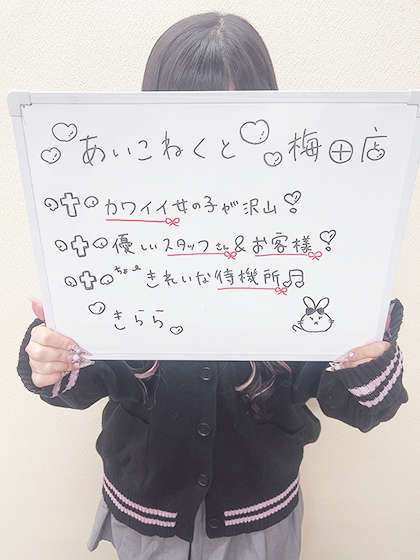 あいこねくと 梅田店
カワイイ女の子が沢山!
優しいスタッフさん&お客様!
ちょーきれいな待機所♫
きらら